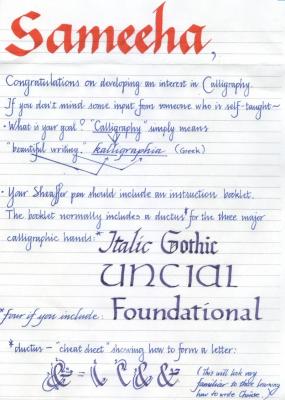 Sameeha,
Congratulations on developing an interest in Calligraphy.
If you don't mind some input from someone who is self-taught~
• What is your goal? "Calligraphy" simply means
"beautiful writing. kalligraphia (Greek)
• Your Sheaffer pen should include an instruction booklet.
The booklet normally includes a ductus* for the three major
calligraphic hands:* Italic Gothic
UNCIAL
*four if you include: Foundational
*ductus – "cheat sheet" showing how to form a letter:
(This will look very
familiar to those learning
how to write Chinese